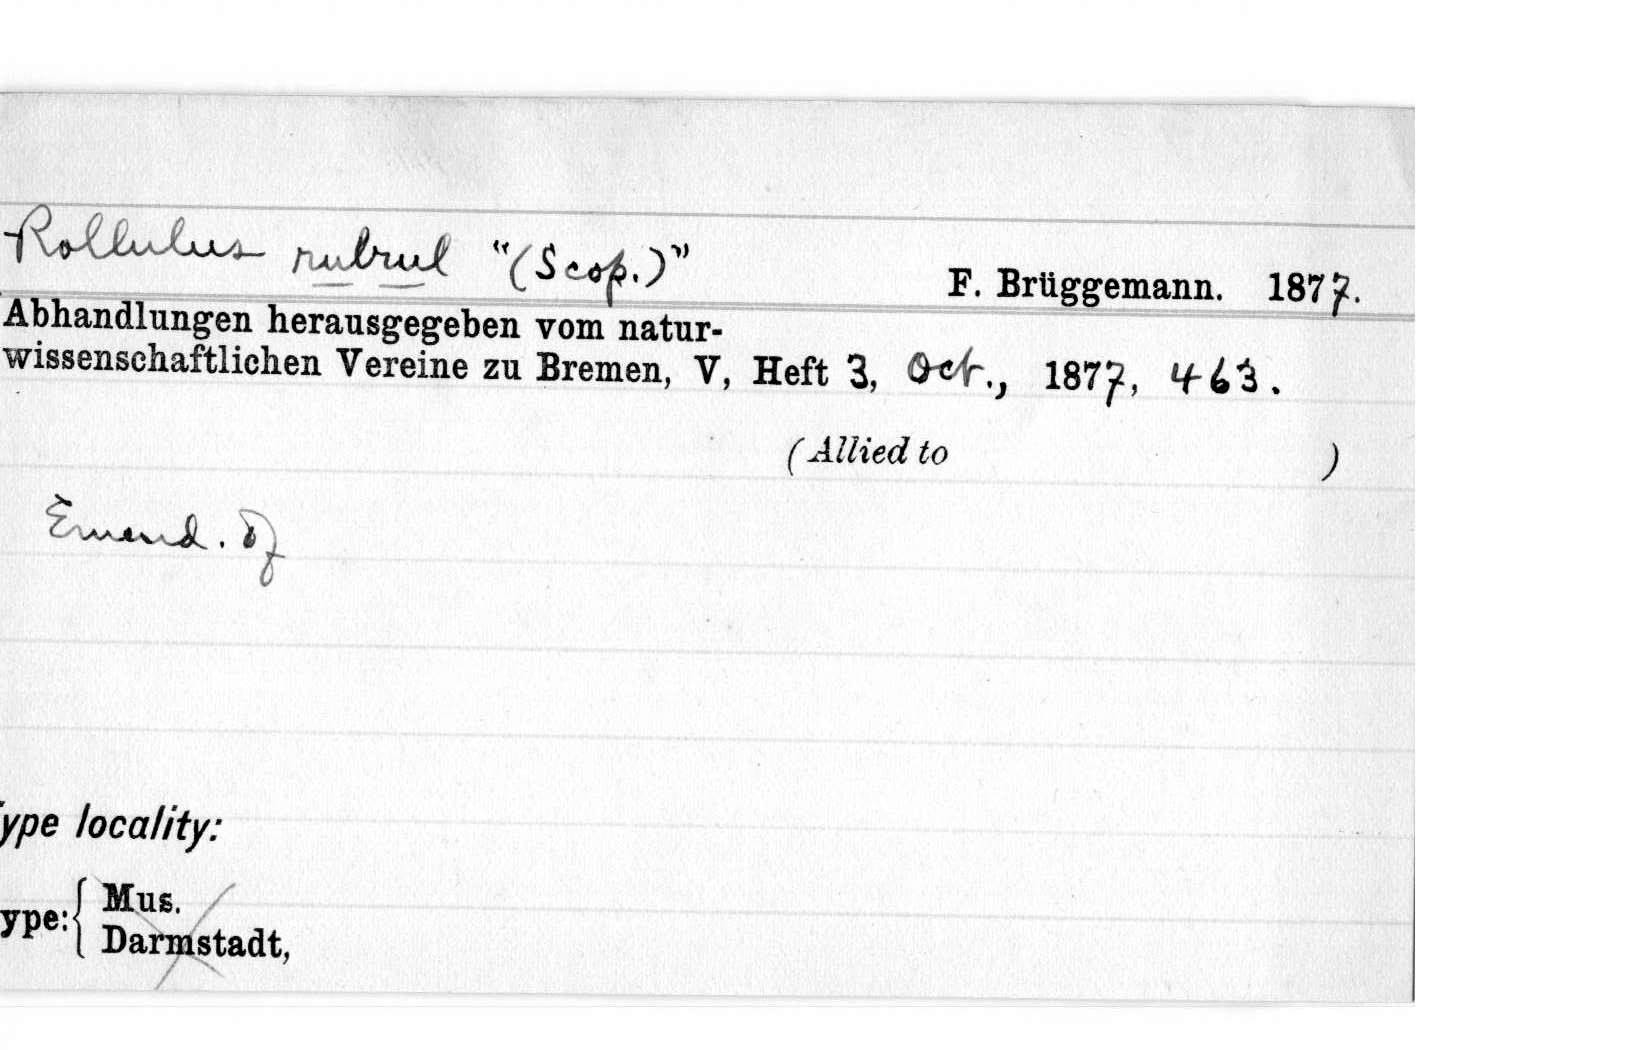 Rollulus rubrul "(Scop.)"
F. Brüggemann. 1877.
Abhandlungen herausgegeben vom natur-
wissenschaftlichen Vereine zu Bremen, V, Heft 3, Oct., 1877, 463.
(Allied to )
Emend. of
ype locality:
ype: { Mus.
Darmstadt,